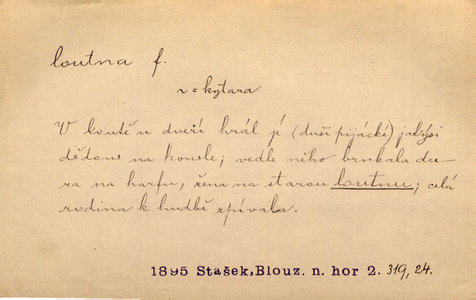 loutna f.
v = kytara
V koutě u dveří hrál jí (duši pijácké) jakýsi
dědous na housle; vedle něho brnkala dce-
ra na harfu, žena na starou loutnu; celá
rodina k hudbě zpívala.
1895 Stašek, Blouz. n. hor 2. 319, 24.